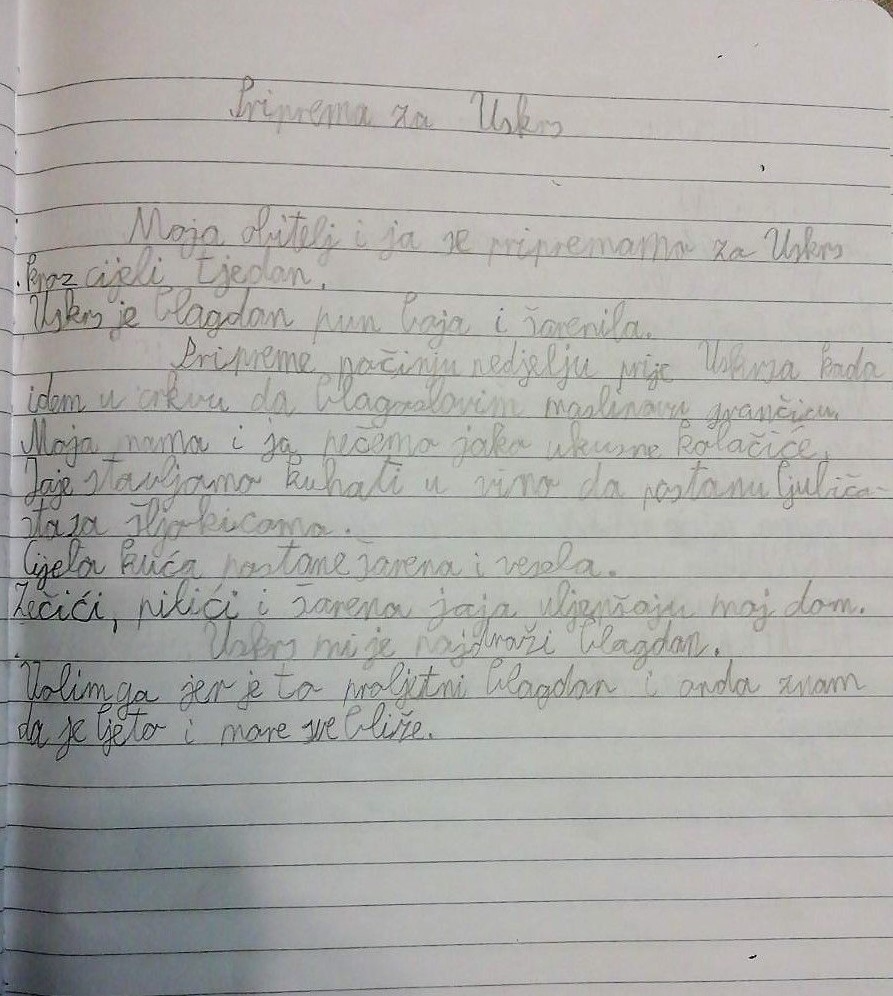 Priprema za Uskrs
Moja obitelj i ja se pripremamo za Uskrs
kroz cijeli tjedan.
Uskrs je blagdan pun boja i šarenila.
Pripreme počinju nedjelju prije Uskrsa kada
idem u crkvu da blagoslovim maslinovu grančicu.
Moja mama i ja pečemo jako ukusne kolačiće.
Jaje stavljamo kuhati u vino da postanu ljubiča-
sta sa šljokicama.
Cijela kuća postane šarena i vesela.
Zečići, pilići i šarena jaja uljepšaju moj dom.
Uskrs mi je najdraži blagdan.
Volim ga jer je to proljetni blagdan i onda znam
da je ljeto i more sve bliže.